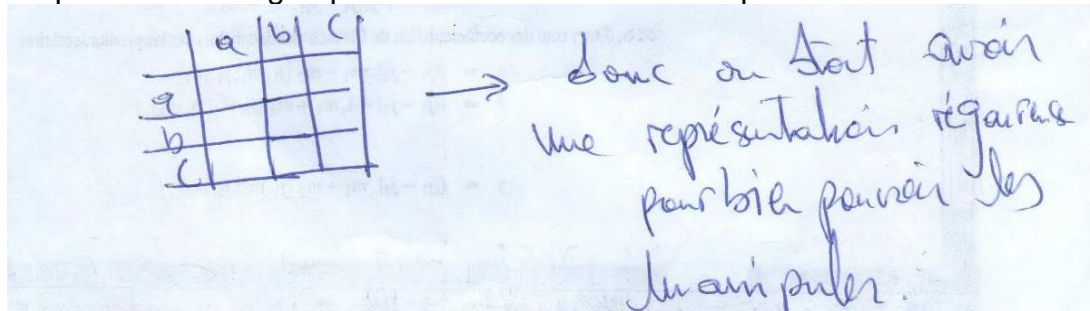 a b c
a
b
c
→ donc on doit avoir
une représentation régoureuse
pour bien pouvoir les
manipuler.